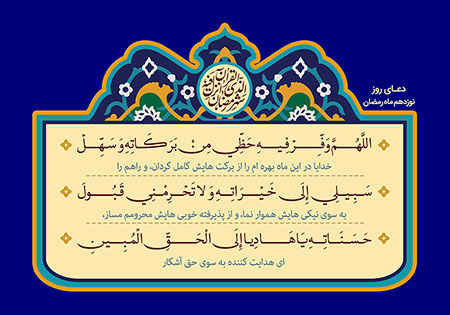 شهر رمضان الذی انزل فیه القرآن
دعـای روز
نوزدهم ماه رمضان
اللَّهُمَّ وَفِّرْ فِيهِ حَظِّي مِنْ بَرَكَاتِهِ وَسَهِّلْ
خدایا در این ماه بهره ام را از برکت هایش کامل گردان، و راهم را
سَبِيلِي إِلَى خَيْرَاتِهِ وَلَا تَحْرِمْنِي قَبُولَ
به سوی نیکی هایش هموار نما، و از پذیرفته خوبی هایش محرومم مساز،
حَسَنَاتِهِ يَا هَادِيا إِلَى الْحَقِّ الْمُبِينِ
ای هدایت کننده به سوی حق آشکار